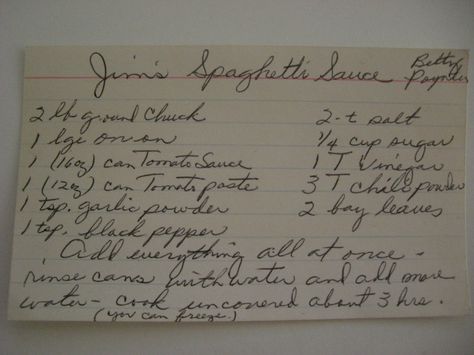 Jim's Spaghetti Sauce
Betty Poynter
2 lb ground chuck
1 lge onion
1 (16oz) can Tomato Sauce
1 (12oz) can Tomato paste
1 tsp. garlic powder
1 tsp. black pepper
2-t salt
1/4 cup sugar
1 T vinegar
3 T chili powder
2 bay leaves
Add everything all at once -
rinse cans with water and add more
water - cook uncovered about 3 hrs.
(you can freeze.)